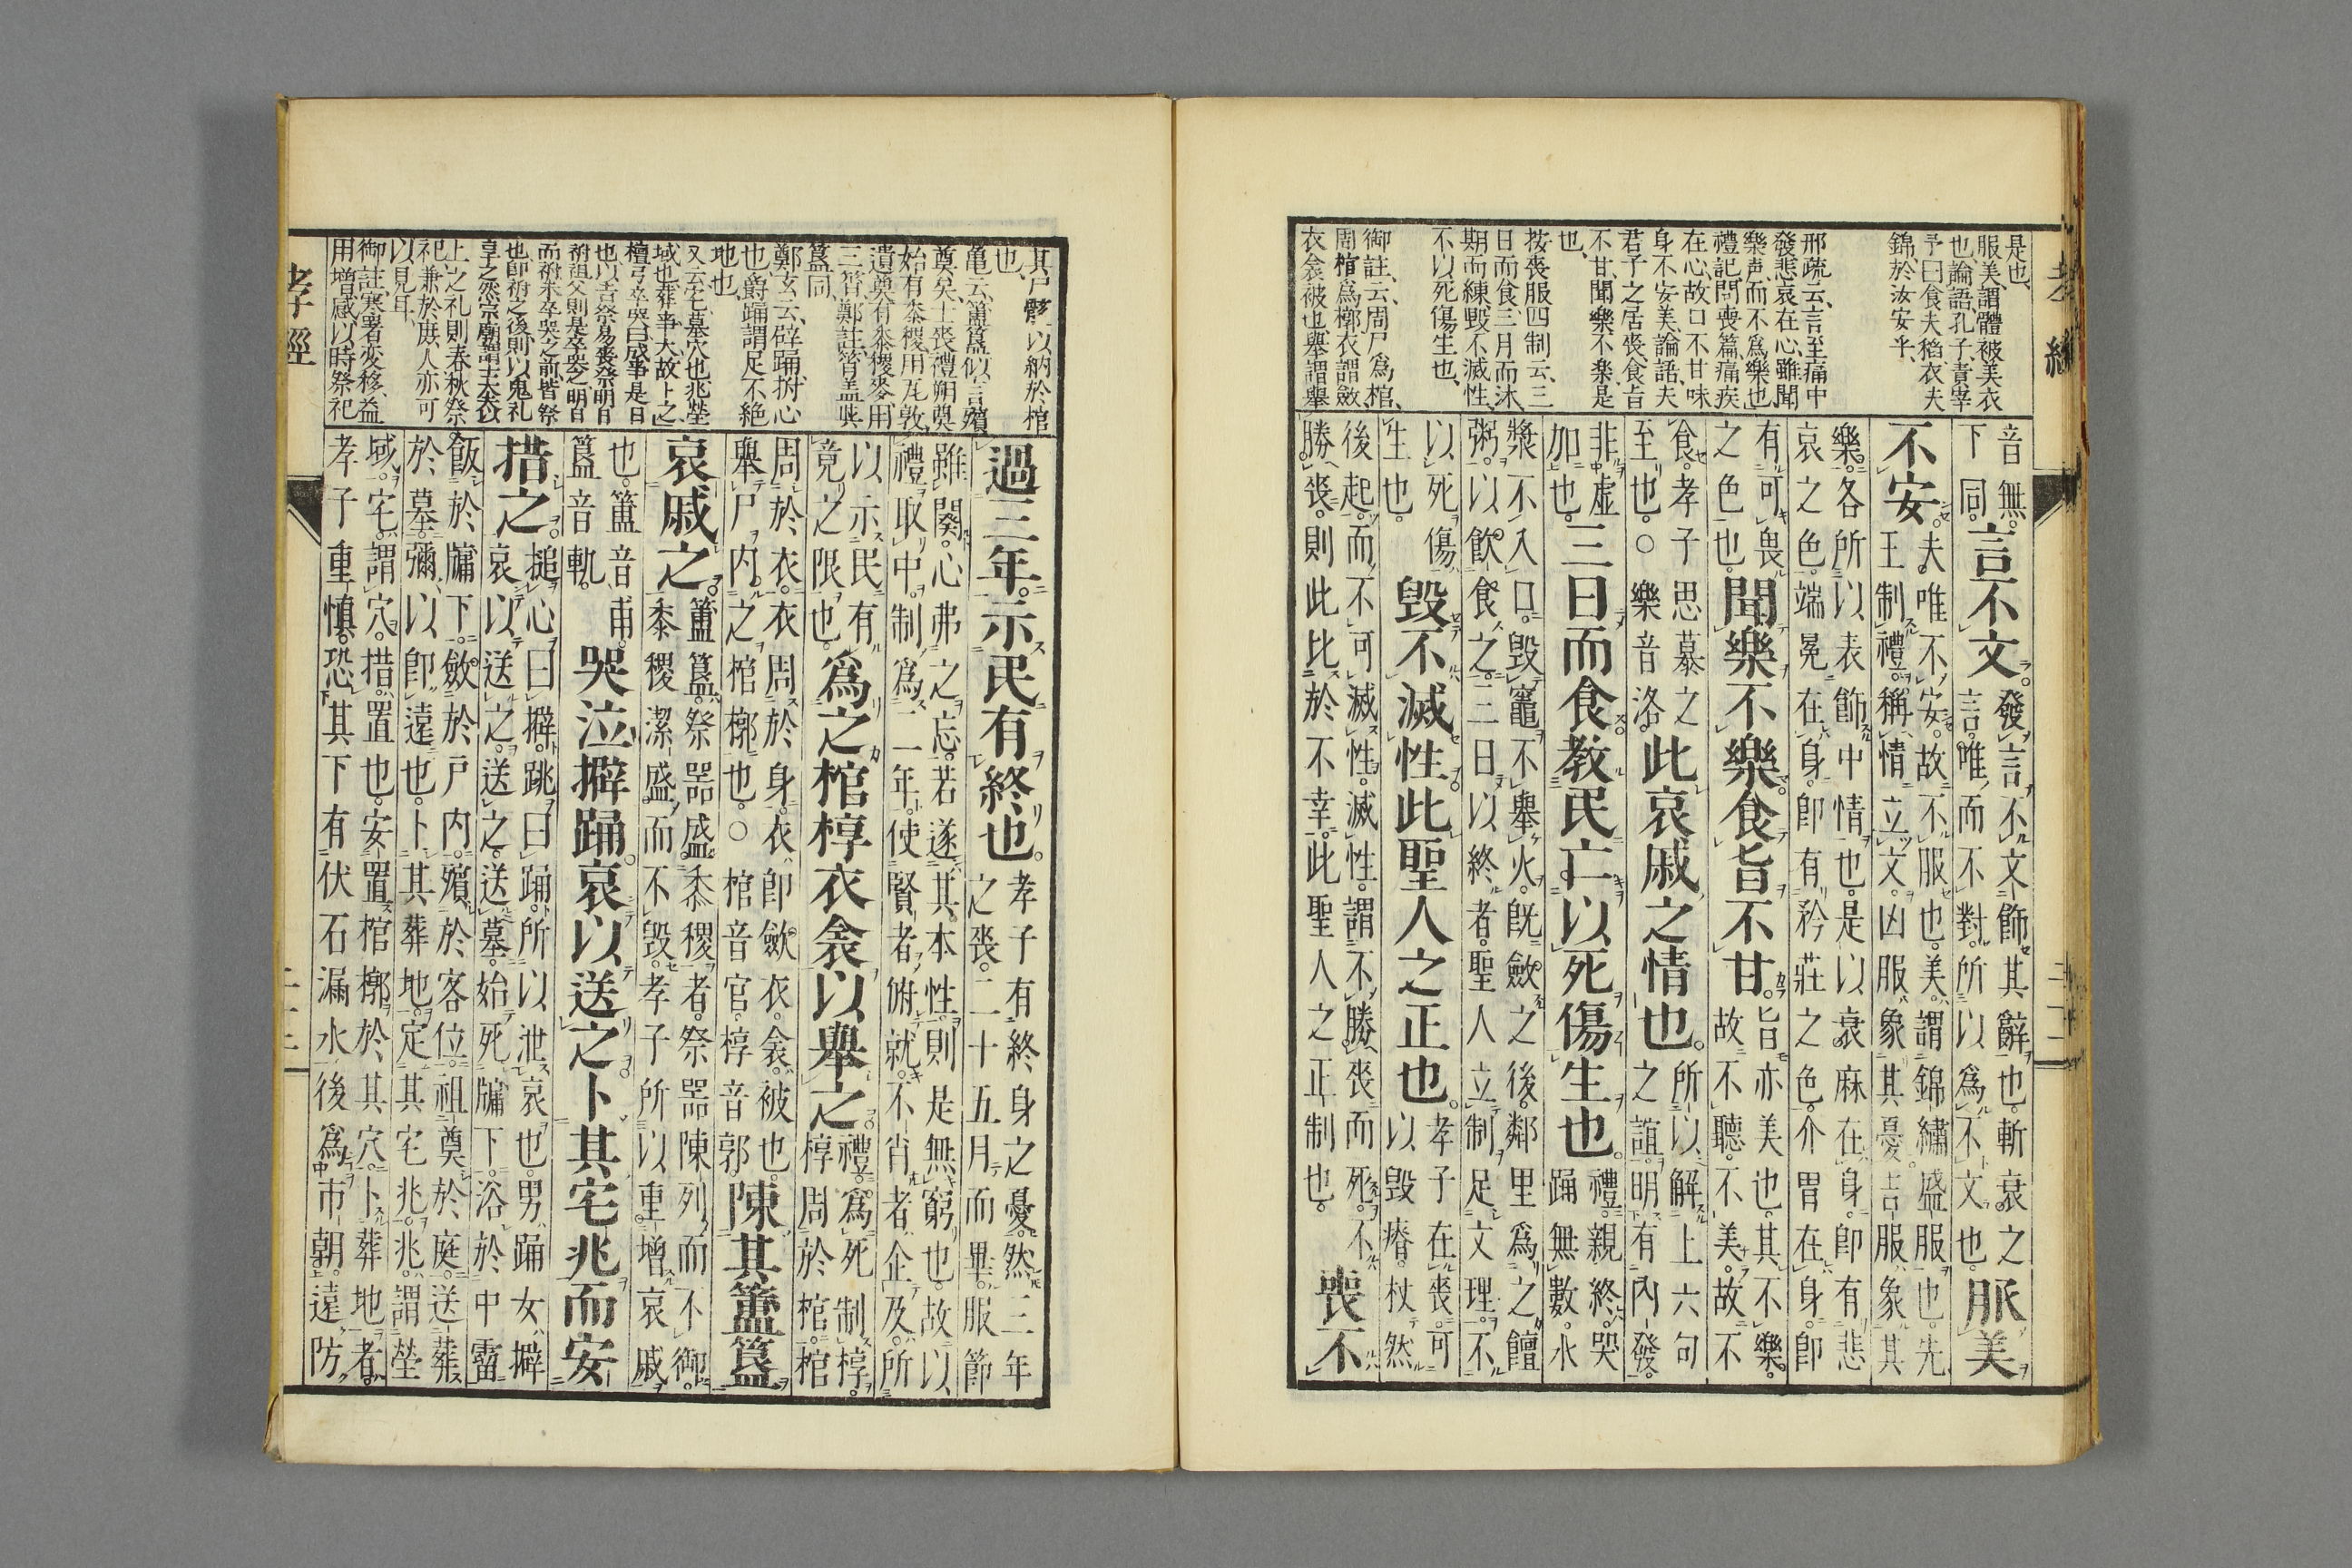 是也、
服美、謂體被美衣
也、論語、孔子、責宰
予曰、食夫稻、衣夫
錦、於汝安乎、
邢疏云、言至痛中
發、悲哀在心、雖聞
樂声、而不爲樂也、
禮記、問喪篇、痛疾
在心、故口不甘味、
身不安美、論語、夫
君子之居喪、食旨
不甘、聞樂不楽、是
也、
按喪服四制云、三
日而食、三月而沐、
期而練、毀不滅性、
不以死傷生也、
御註云、周尸爲棺、
周棺爲槨、衣謂斂
衣、衾被也、舉謂舉
音無。
下同。
言不文。
發言不文飾其辭也。斬衰之
言。唯而不對。所以爲不文也。
服美
不安。
夫唯不安。故不服也。美。謂錦繡盛服也。先
王制禮。稱情立文。凶服象其憂。吉服象其
樂。各所以表飾中情也。是以衰麻在身。卽有悲
哀之色。端冕在身。卽有矜莊之色。介冑在身。卽
有可畏
之色也。
聞樂不樂。食旨不甘。
旨亦美也。其不樂。
故不聽。不美。故不
食。孝子思慕之
至也。○樂音洛。
此哀戚之情也。
所以解上六句
之誼。明有內發。
非虛
加也。
三日而食。教民亡以死傷生也。
禮。親終。哭
踊無數。水
漿不入口。毀竈不舉火。旣斂之後。鄰里爲之饘
粥。以飮食之。三日以終者。聖人立制足文理。不
以死傷
生也。
毀不滅性。此聖人之正也。
孝子在喪。可
以毀瘠。杖然
後起。而不可滅性。滅性。謂不勝喪而死。不
勝喪。則此比於不幸。此聖人之正制也。
喪不
孝經
其尸骸以納於棺
也、
𠅘云、簠簋似言殯
奠矣、士喪禮、朔奠
始有黍稷、用瓦敦、
遺奠有黍稷麥、用
三筲、鄭註、筲蓋與
簋同、
鄭玄云、辟踊、拊心
也、爵踊、謂足不絶
地也、
又云、宅、墓穴也、兆、塋
域也、葬事大、故卜之、
檀弓、卒哭曰成事、是日
也、以吉祭易喪祭、明日
祔祖父、則是卒哭之明日
而祔、未卒哭之前、皆喪祭
也、卽祔之後、則以鬼礼
享之、然宗廟謂士大夫以
上之礼、則春秋祭
祀、兼於庶人、亦可
以見耳、
御註、寒暑変移、益
用増感、以時祭祀
過三年。示民有終也。
孝子有終身之憂。然三年
之喪。二十五月而畢。服節
雖闋。心弗之忘。若遂其本性。則是無窮也。故以
禮取中。制爲二年。使賢者俯就。不肖者企及。所
以示民有
竟之限也。
爲之棺椁衣衾以舉之。
禮。爲死制椁。
椁周於棺。棺
周於衣。衣周於身。衣。卽斂衣。衾。被也。
舉尸內之棺槨也。○棺音官。椁音郭。
陳其簠簋
哀戚之。
簠簋。祭器盛黍稷者。祭器陳列而不御。
黍稷潔盛而不毀。孝子所以重增哀戚
也。簠音甫。
簋音軌。
哭泣擗踊。哀以送之。卜其宅兆而安
措之。
搥心曰擗。跳曰踊。所以泄哀也。男踊女擗
哀以送之。送之。送墓。始死牖下。浴於中霤
飯於牖下。斂於戸內。殯於客位。祖奠於庭。送葬
於墓。彌以卽遠也。卜其葬地。定其宅兆。兆。謂塋
域。宅。謂穴。措。置也。安置棺槨於其穴。卜葬地者。
孝子重慎。恐其下有伏石漏水。後爲市朝。遠防
孝經